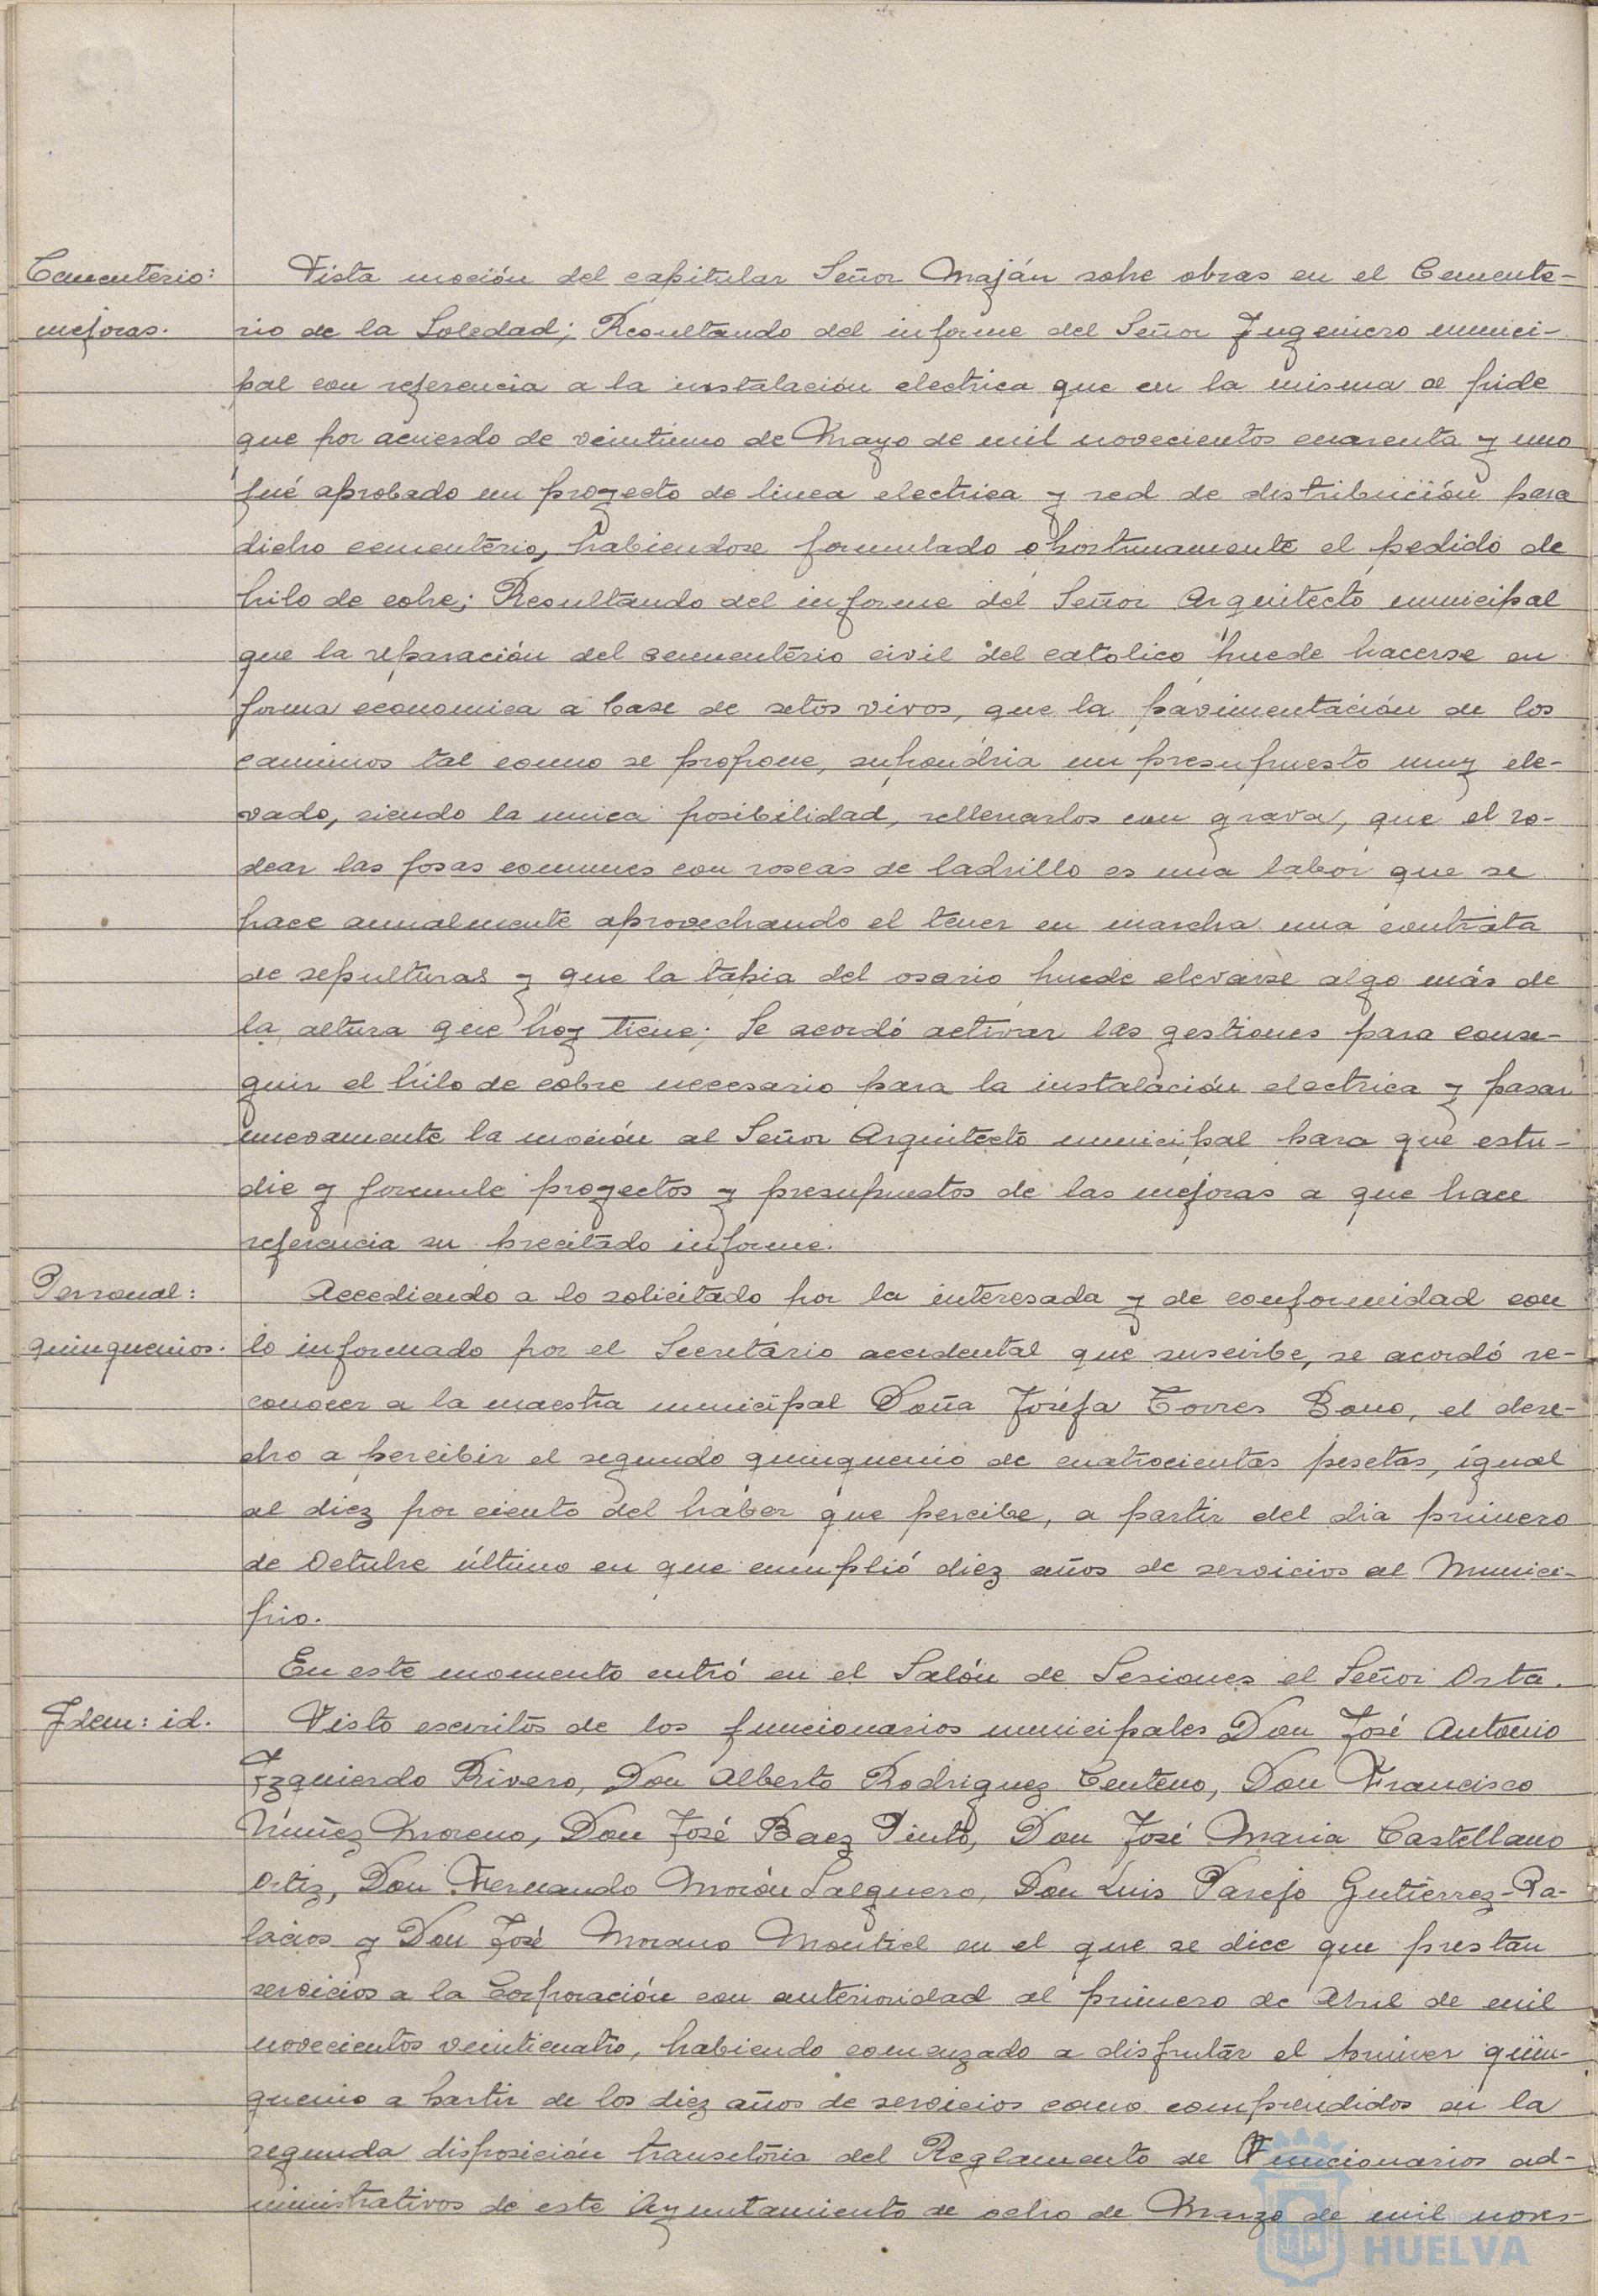 Cementerio:
mejoras.
Vista moción del capitular Señor Maján sobre obras en el Cemente-
rio de la Soledad; Resultando del informe del Señor Ingeniero munici-
pal con referencia a la instalación electrica que en la misma se pide
que por acuerdo de veintiuno de Mayo de mil novecientos cuarenta y uno
fué aprobado un proyecto de linea electrica y red de distribución para
dicho cementerio, habiendose formulado oportunamente el pedido de
hilo de cobre; Resultando del informe del Señor Arquitecto municipal
que la reparación del cementerio civil del catolico puede hacerse en
forma economica a base de setos vivos, que la pavimentación de los
caminos tal como se propone, supondria un presupuesto muy ele-
vado, siendo la unica posibilidad, rellenarlos con grava, que el ro-
dear las fosas comunes con roscas de ladrillo es una labor que se
hace anualmente aprovechando el tener en marcha una contrata
de sepulturas y que la tapia del osario puede elevarse algo más de
la altura que hoy tiene; Se acordó activar las gestiones para conse-
guir el hilo de cobre necesario para la instalación electrica y pasar
nuevamente la moción al Señor Arquitecto municipal para que estu-
die y formule proyectos y presupuestos de las mejoras a que hace
referencia su precitado informe.
Personal:
quinquenios.
Accediendo a lo solicitado por la interesada y de conformidad con
lo informado por el Secretario accidental que suscribe, se acordó re-
conocer a la maestra municipal Doña Josefa Torres Bono, el dere-
cho a percibir el segundo quinquenio de cuatrocientas pesetas, igual
al diez por ciento del haber que percibe, a partir del dia primero
de Octubre último en que cumplió diez años de servicios al Munici-
pio.
En este momento entró en el Salón de Sesiones el Señor Orta.
Idem: id.
Visto escritos de los funcionarios municipales Don José Antonio
Izquierdo Rivero, Don Alberto Rodriguez Centeno, Don Francisco
Núñez Moreno, Don José Baez Pinto, Don José Maria Castellano
Ortiz, Don Fernando Morón Salguero, Don Luis Parejo Gutierrez-Pa-
lacios y Don José Morano Montiel en el que se dice que prestan
servicios a la Corporación con anterioridad al primero de Abril de mil
novecientos veinticuatro, habiendo comenzado a disfrutar el primer quin-
quenio a partir de los diez años de servicios como comprendidos en la
segunda disposición transitoria del Reglamento de Funcionarios ad-
ministrativos de este Ayuntamiento de ocho de Marzo de mil nove-
HUELVA